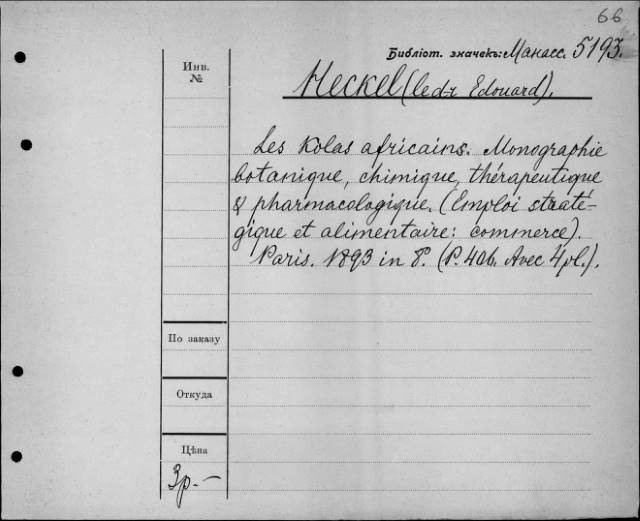 66
Библіот. значекъ: Манасс. 5193.
Инв.
№
Heckel (le d-r Edouard).
Les Kolas africains. Monographie
botanique, chimique, thérapeutique
& pharmacologique. (Emploi straté-
gique et alimentaire: commerce).
Paris. 1893 in 8°. (P. 406. Avec 4 pl.).
По заказу
Откуда
Цѣна
3р.—